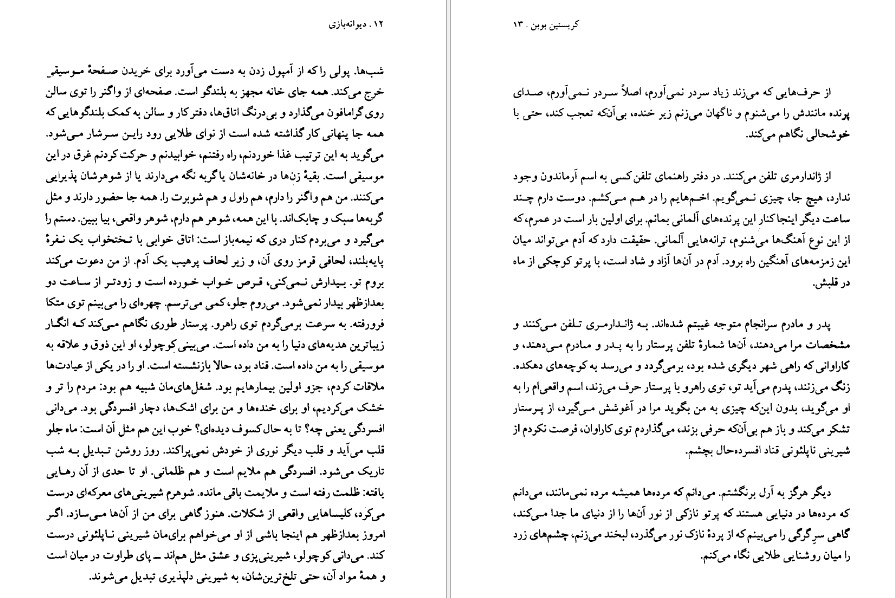 ۱۲ . دیوانه‌بازی
شب‌ها. پولی را که از آمپول زدن به دست می‌آورد برای خریدن صفحهٔ موسیقی
خرج می‌کند. همه جای خانه مجهز به بلندگو است. صفحه‌ای از واگنر را توی سالن
روی گرامافون می‌گذارد و بی‌درنگ اتاق‌ها، دفتر کار و سالن به کمک بلندگوهایی که
همه جا پنهانی کار گذاشته شده است از نوای طلایی رود راین سرشار می‌شود.
می‌گوید به این ترتیب غذا خوردنم، راه رفتنم، خوابیدنم و حرکت کردنم غرق در این
موسیقی است. بقیهٔ زن‌ها در خانه‌شان یا گربه نگه می‌دارند یا از شوهرشان پذیرایی
می‌کنند. من هم واگنر را دارم، هم راول و هم شوبرت را. همه جا حضور دارند و مثل
گربه‌ها سبک و چابک‌اند. با این همه، شوهر هم دارم، شوهر واقعی، بیا ببین. دستم را
می‌گیرد و می‌بردم کنار دری که نیمه‌باز است: اتاق خوابی با تختخواب یک نفرهٔ
پایه‌بلند، لحافی قرمز روی آن، و زیر لحاف پرهیب یک آدم. از من دعوت می‌کند
بروم تو. بیدارش نمی‌کنی، قرص خواب خورده است و زودتر از ساعت دو
بعدازظهر بیدار نمی‌شود. می‌روم جلو، کمی می‌ترسم. چهره‌ای را می‌بینم توی متکا
فرورفته. به سرعت برمی‌گردم توی راهرو. پرستار طوری نگاهم می‌کند که انگار
زیباترین هدیه‌های دنیا را به من داده است. می‌بینی کوچولو، او این ذوق و علاقه به
موسیقی را به من داده است. قناد بود، حالا بازنشسته است. او را در یکی از عیادت‌ها
ملاقات کردم، جزو اولین بیمارهایم بود. شغل‌های‌مان شبیه هم بود: مردم را تر و
خشک می‌کردیم، او برای خنده‌ها و من برای اشک‌ها، دچار افسردگی بود. می‌دانی
افسردگی یعنی چه؟ تا به حال کسوف دیده‌ای؟ خوب این هم مثل آن است: ماه جلو
قلب می‌آید و قلب دیگر نوری از خودش نمی‌پراکند. روز روشن تبدیل به شب
تاریک می‌شود. افسردگی هم ملایم است و هم ظلمانی. او تا حدی از آن رهایی
یافته: ظلمت رفته است و ملایمت باقی مانده. شوهرم شیرینی‌های معرکه‌ای درست
می‌کرد، کلیساهایی واقعی از شکلات. هنوز گاهی برای من از آن‌ها می‌سازد. اگر
امروز بعدازظهر هم اینجا باشی از او می‌خواهم برای‌مان شیرینی ناپلئونی درست
کند. می‌دانی کوچولو، شیرینی‌پزی و عشق مثل هم‌اند ــ پای طراوت در میان است
و همهٔ مواد آن، حتی تلخ‌ترین‌شان، به شیرینی دلپذیری تبدیل می‌شوند.
کریستین بوبن . ۱۳
از حرف‌هایی که می‌زند زیاد سردر نمی‌آورم، اصلاً سردر نمی‌آورم، صدای
پرنده مانندش را می‌شنوم و ناگهان می‌زنم زیر خنده، بی‌آن‌که تعجب کند، حتی با
خوشحالی نگاهم می‌کند.
از ژاندارمری تلفن می‌کنند. در دفتر راهنمای تلفن کسی به اسم آرماندون وجود
ندارد، هیچ جا، چیزی نمی‌گویم. اخم‌هایم را در هم می‌کشم. دوست دارم چند
ساعت دیگر اینجا کنار این پرنده‌های آلمانی بمانم. برای اولین بار است در عمرم، که
از این نوع آهنگ‌ها می‌شنوم، ترانه‌هایی آلمانی. حقیقت دارد که آدم می‌تواند میان
این زمزمه‌های آهنگین راه برود. آدم در آن‌ها آزاد و شاد است، با پرتو کوچکی از ماه
در قلبش.
پدر و مادرم سرانجام متوجه غیبتم شده‌اند. به ژاندارمری تلفن می‌کنند و
مشخصات مرا می‌دهند، آن‌ها شمارهٔ تلفن پرستار را به پدر و مادرم می‌دهند، و
کاراوانی که راهی شهر دیگری شده بود، برمی‌گردد و می‌رسد به کوچه‌های دهکده.
زنگ می‌زنند، پدرم می‌آید تو، توی راهرو با پرستار حرف می‌زند، اسم واقعی‌ام را به
او می‌گوید، بدون این‌که چیزی به من بگوید مرا در آغوشش می‌گیرد، از پرستار
تشکر می‌کند و باز هم بی‌آن‌که حرفی بزند، می‌گذاردم توی کاراوان، فرصت نکردم از
شیرینی ناپلئونی قناد افسرده‌حال بچشم.
دیگر هرگز به آرل برنگشتم. می‌دانم که مرده‌ها همیشه مرده نمی‌مانند، می‌دانم
که مرده‌ها در دنیایی هستند که پرتو نازکی از نور آن‌ها را از دنیای ما جدا می‌کند،
گاهی سرِ گرگی را می‌بینم که از پردهٔ نازک نور می‌گذرد، لبخند می‌زنم، چشم‌های زرد
را میان روشنایی طلایی نگاه می‌کنم.